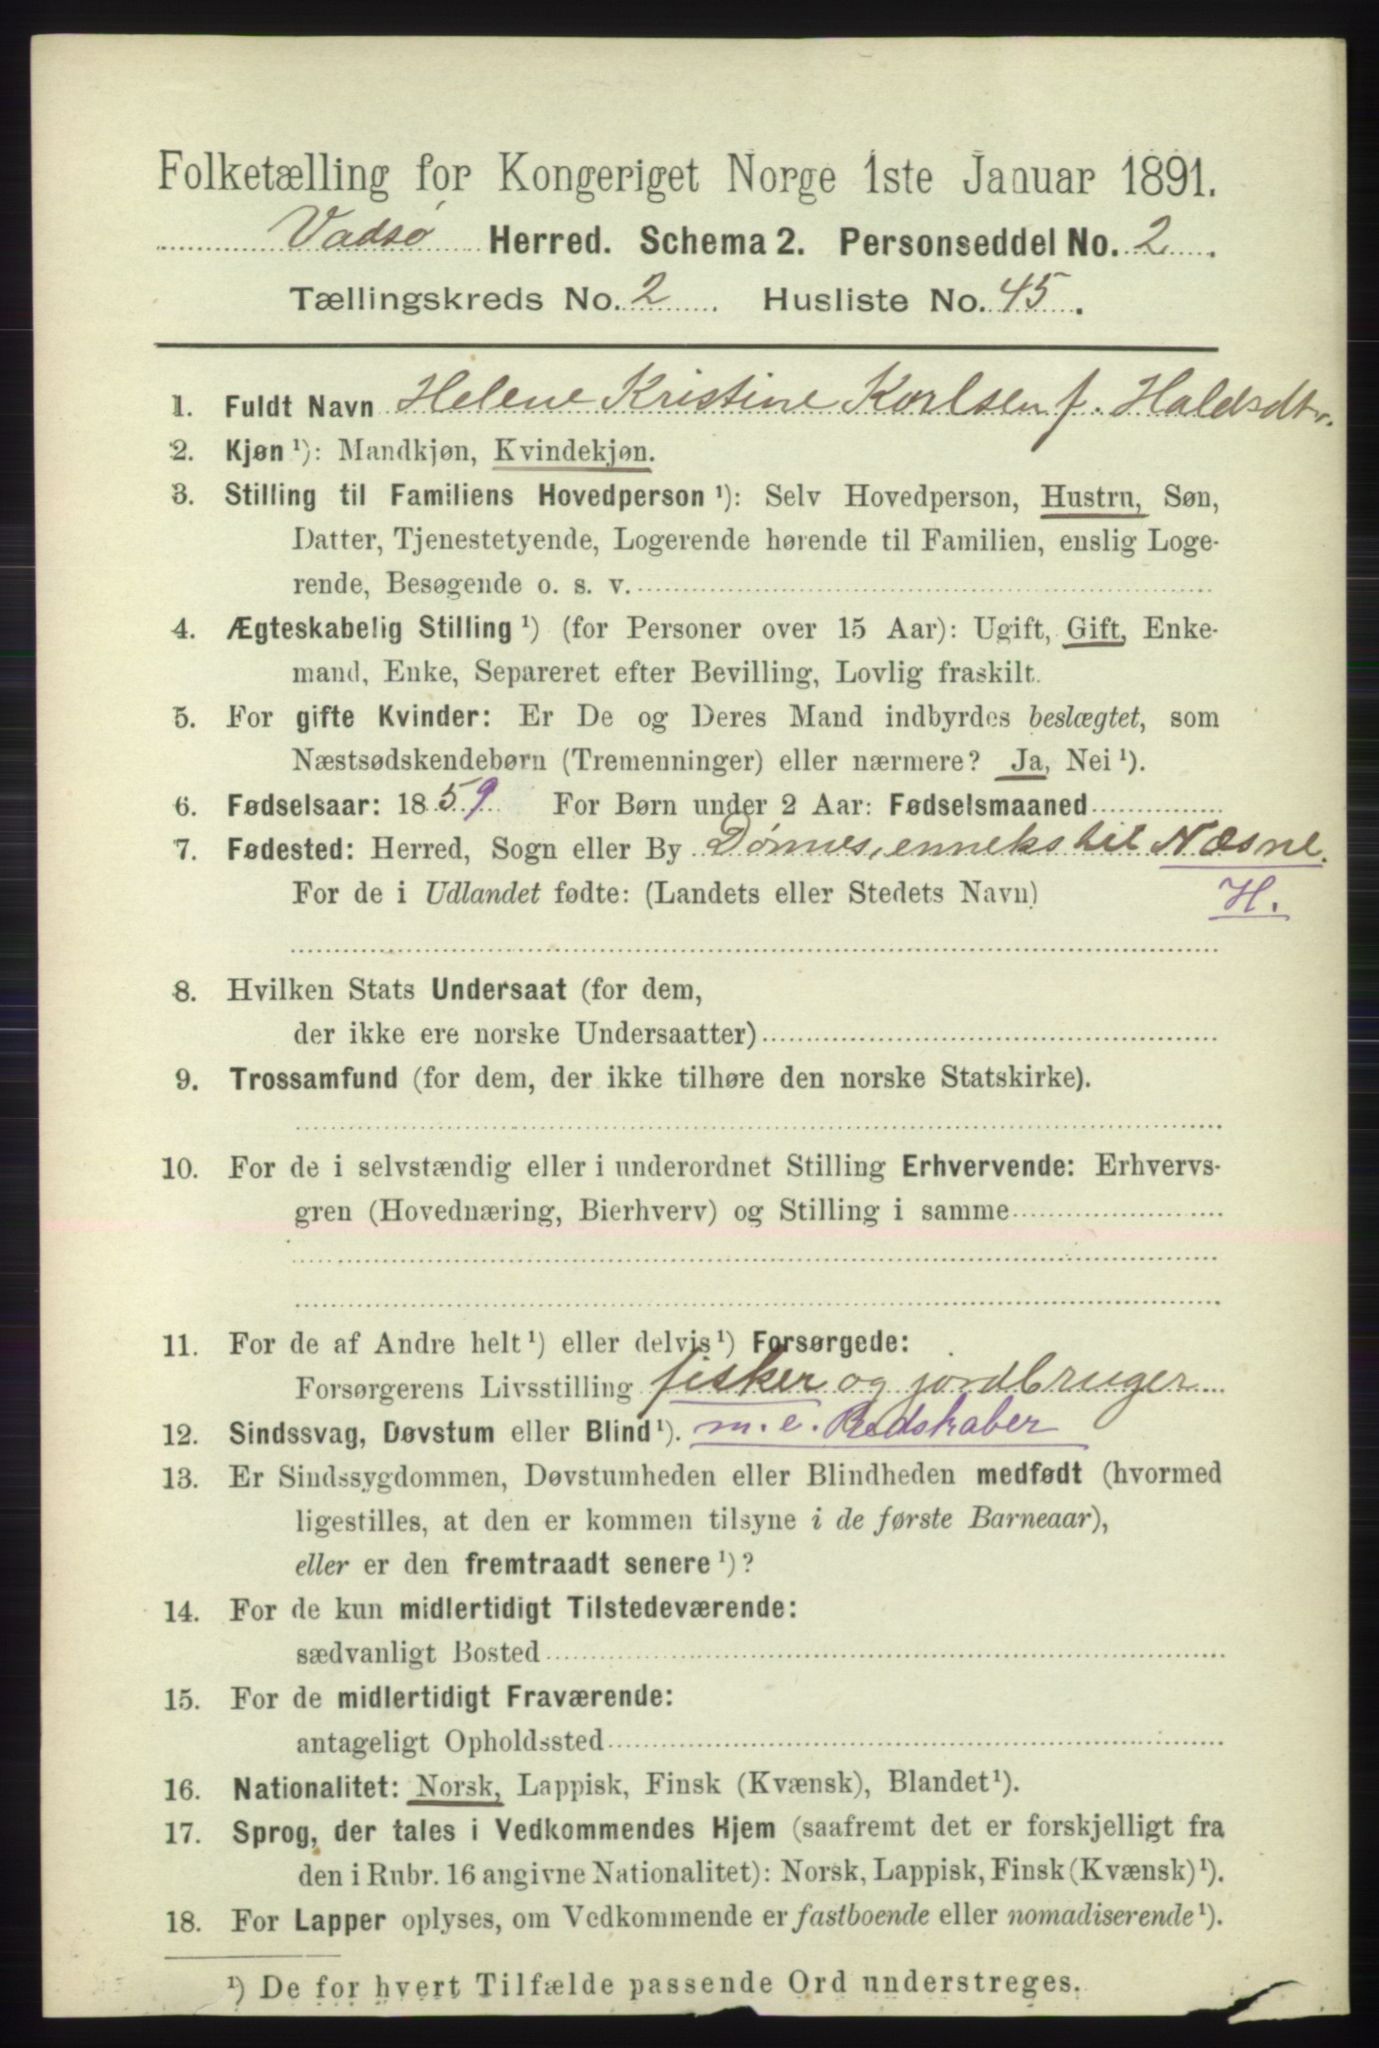 Folketælling for Kongeriget Norge 1ste Januar 1891.
Vadsø Herred. Schema 2. Personseddel No. 2.
Tællingskreds No. 2. Husliste No. 45.
1. Fuldt Navn Helene Kristine Karlsen f. Haldsdtr.
2. Kjøn ¹): Mandkjøn, Kvindekjøn.
3. Stilling til Familiens Hovedperson ¹): Selv Hovedperson, Hustru, Søn,
Datter, Tjenestetyende, Logerende hørende til Familien, enslig Loge-
rende, Besøgende o. s. v.
4. Ægteskabelig Stilling ¹) (for Personer over 15 Aar): Ugift, Gift, Enke-
mand, Enke, Separeret efter Bevilling, Lovlig fraskilt.
5. For gifte Kvinder: Er De og Deres Mand indbyrdes beslægtet, som
Næstsødskendebørn (Tremenninger) eller nærmere? Ja, Nei ¹).
6. Fødselsaar: 1859 For Børn under 2 Aar: Fødselsmaaned
7. Fødested: Herred, Sogn eller By Dønnes, enneks til Næsne.
For de i Udlandet fødte: (Landets eller Stedets Navn) H.
8. Hvilken Stats Undersaat (for dem,
der ikke ere norske Undersaatter)
9. Trossamfund (for dem, der ikke tilhøre den norske Statskirke).
10. For de i selvstændig eller i underordnet Stilling Erhvervende: Erhvervs-
gren (Hovednæring, Bierhverv) og Stilling i samme
11. For de af Andre helt ¹) eller delvis ¹) Forsørgede:
Forsørgerens Livsstilling fisker og jordbruger
12. Sindssvag, Døvstum eller Blind ¹). m. e. Redskaber
13. Er Sindssygdommen, Døvstumheden eller Blindheden medfødt (hvormed
ligestilles, at den er kommen tilsyne i de første Barneaar),
eller er den fremtraadt senere ¹)?
14. For de kun midlertidigt Tilstedeværende:
sædvanligt Bosted
15. For de midlertidigt Fraværende:
antageligt Opholdssted
16. Nationalitet: Norsk, Lappisk, Finsk (Kvænsk), Blandet ¹).
17. Sprog, der tales i Vedkommendes Hjem (saafremt det er forskjelligt fra
den i Rubr. 16 angivne Nationalitet): Norsk, Lappisk, Finsk (Kvænsk) ¹).
18. For Lapper oplyses, om Vedkommende er fastboende eller nomadiserende ¹).
¹) De for hvert Tilfælde passende Ord understreges.